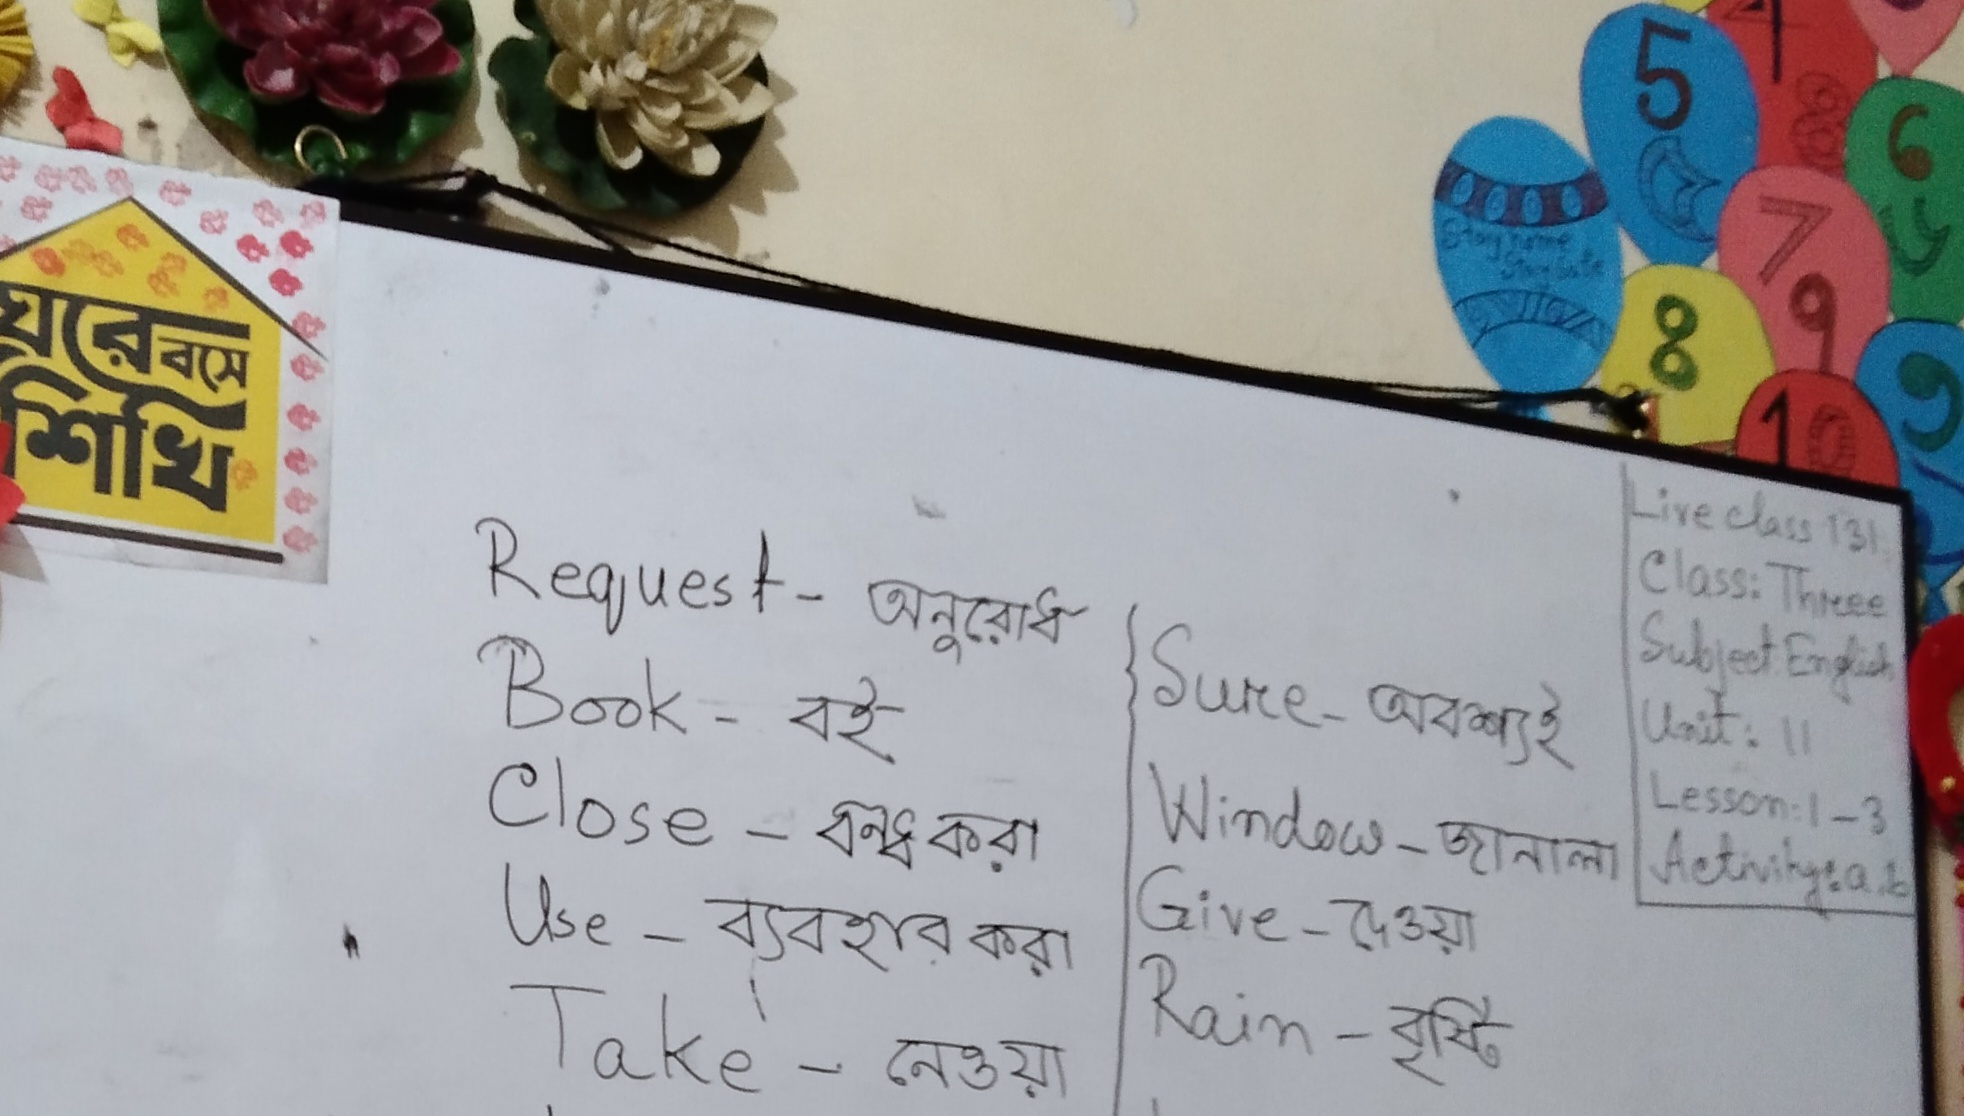 ঘরে বসে
শিখি
5
4
6
7
8
9
10
Stay home
Stay Safe
Request - অনুরোধ
Book - বই
Close - বন্ধ করা
Use - ব্যবহার করা
Take - নেওয়া
Sure - অবশ্যই
Window - জানালা
Give - দেওয়া
Rain - বৃষ্টি
Live class 131
Class: Three
Subject: English
Unit: 11
Lesson: 1-3
Activity: a.b